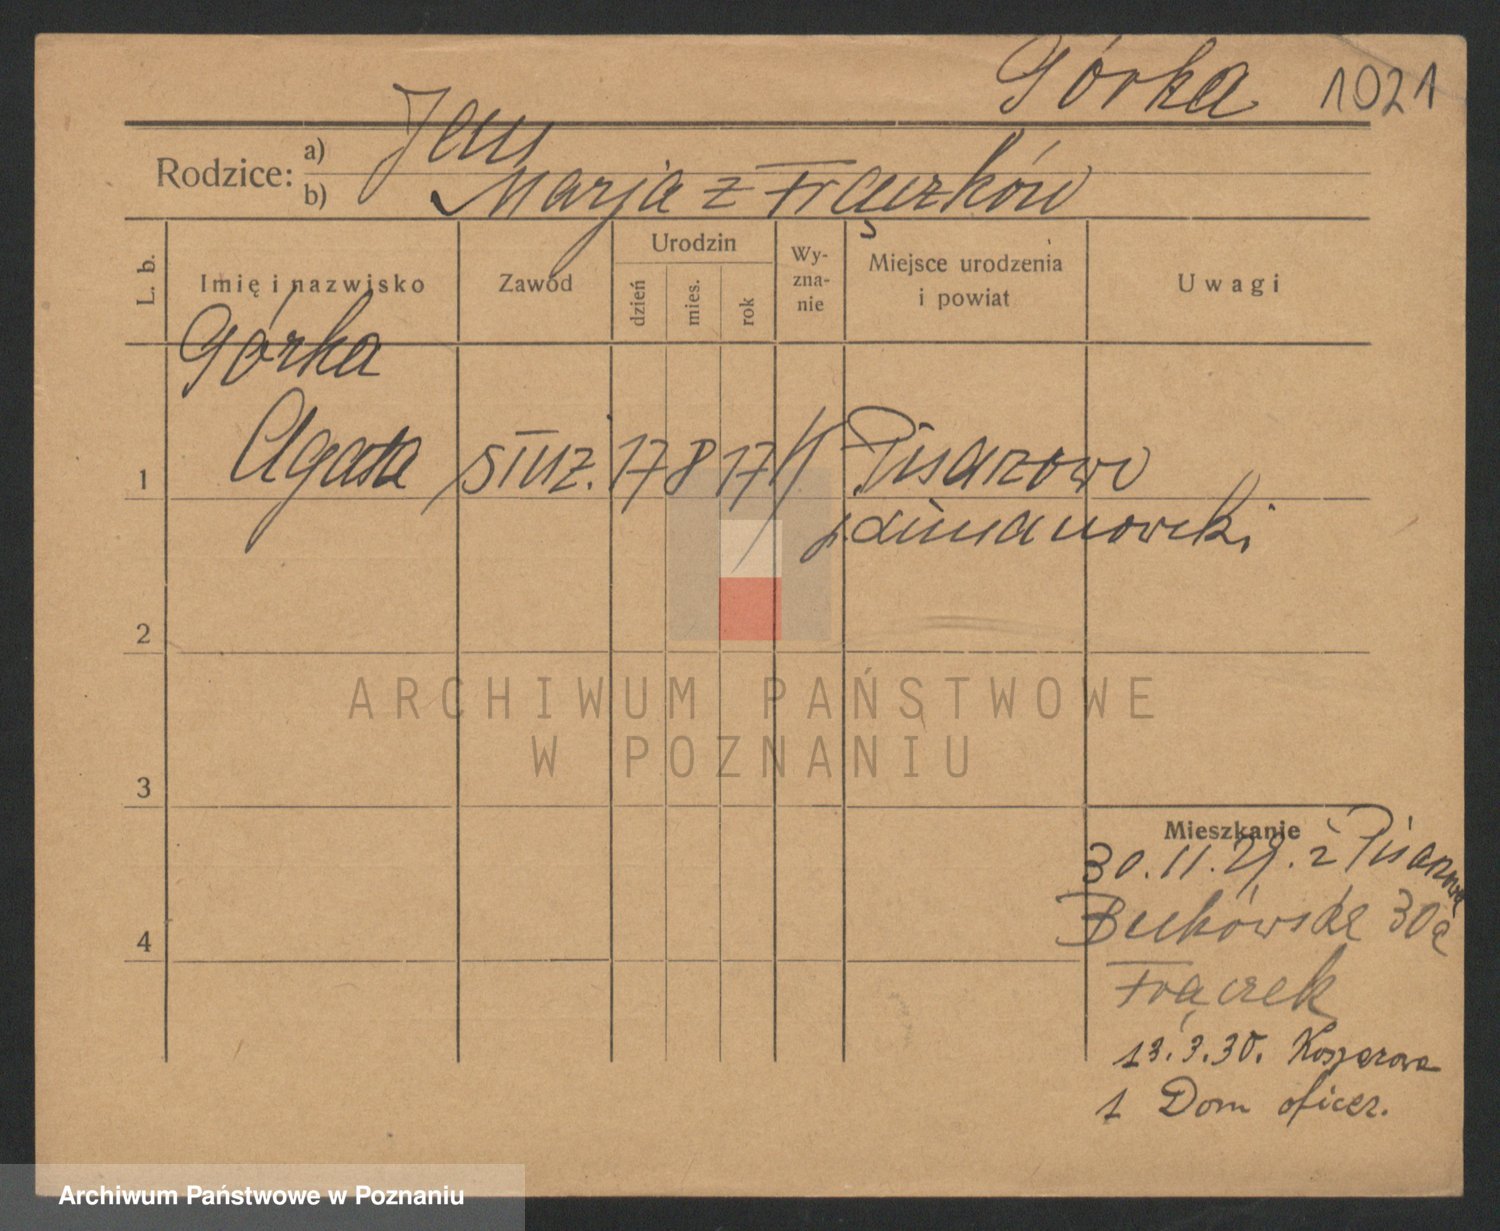 Górka 1021
Rodzice: a) Jan
b) Marja z Frączków
L. b. Imię i nazwisko Zawód Urodzin dzień mies. rok Wy-zna-nie Miejsce urodzenia i powiat Uwagi
Górka
1 Agata służ. 17 8 17 Pisarzowo
Limanowski
2
ARCHIWUM PAŃSTWOWE
W POZNANIU
3
Mieszkanie
30.11.29. z Pisarzowa
Bukowska 30a
4
Frączek
13.3.30. Koszarowa
1 Dom oficer.
Archiwum Państwowe w Poznaniu